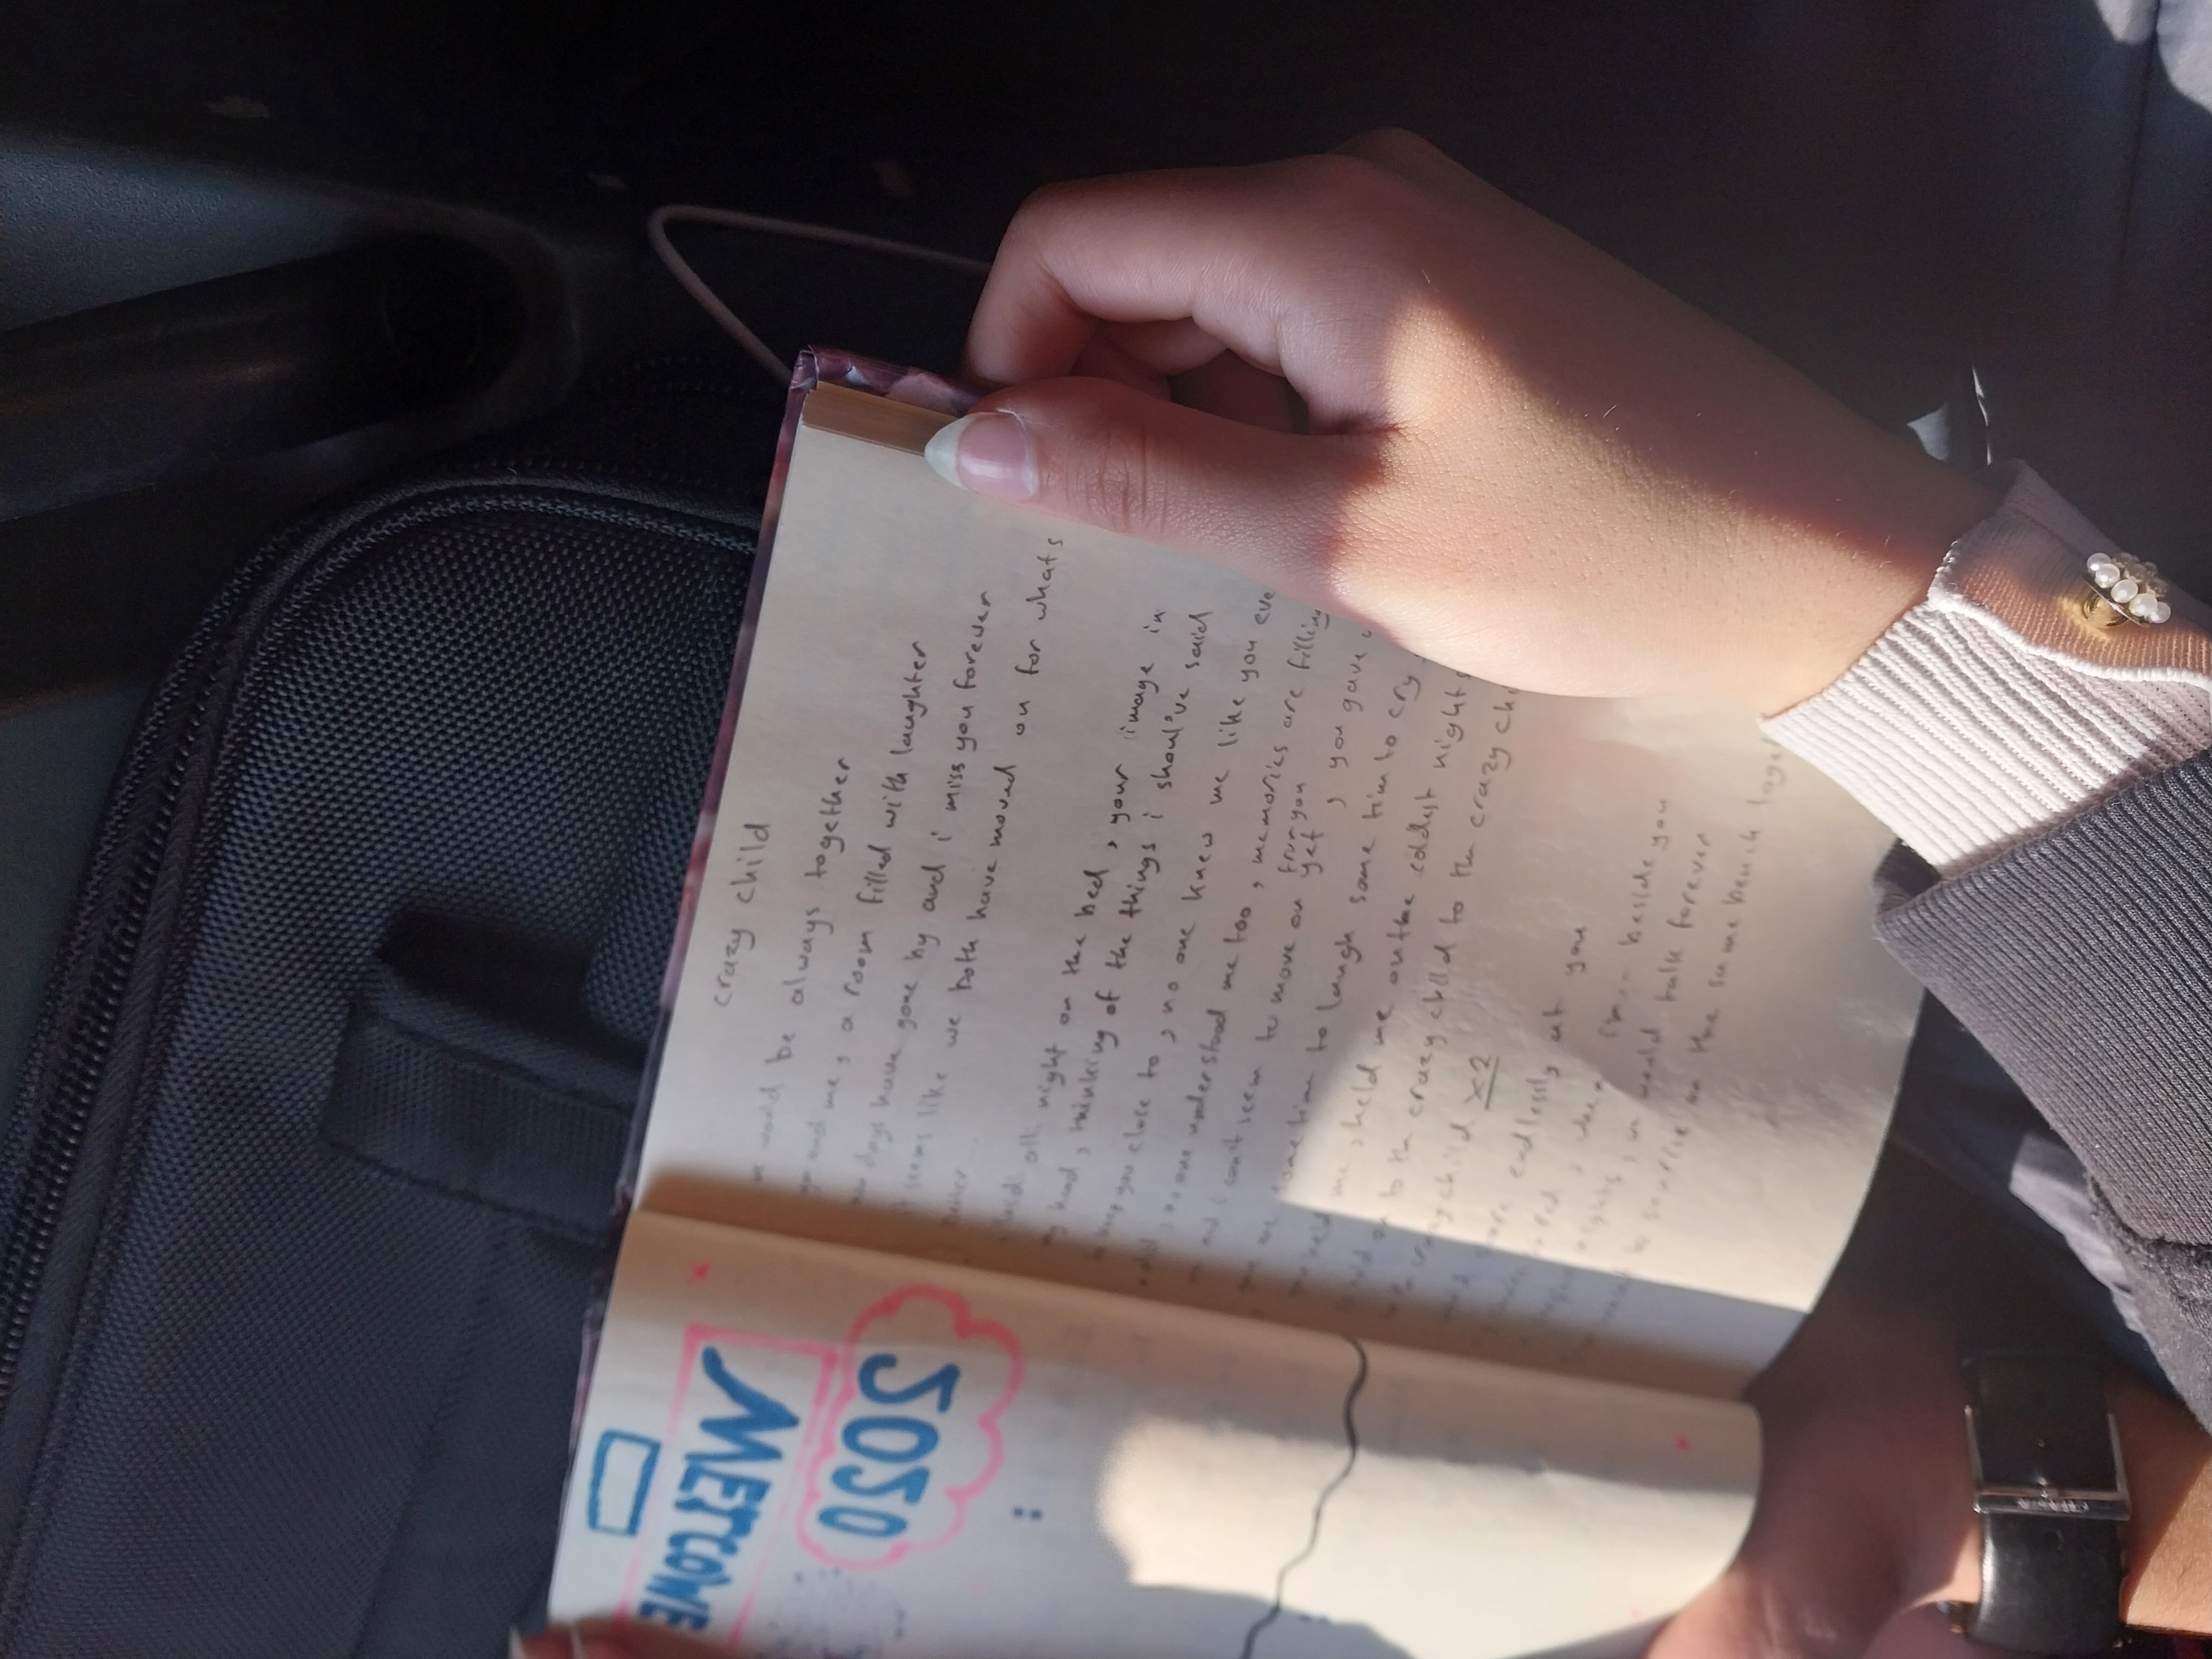 WELCOME
2020
crazy child
we would be always together
you and me, a room filled with laughter
days have gone by and i miss you forever
it seems like we both have moved on for whats
better...
all night on the bed, your image in
my head, thinking of the things i shoul've said
to keep you close to, no one knew me like you eve
did, no one understood me too, memories are filling
and i can't seem to move on yet, you gave
from you
me some tim to laugh some tim to cry
you held me, held me on the coldest nights
hold on to the crazy child to the crazy chi
crazy child x2
stare endlessly at you
when beside you
nights, we would talk forever
to sunrise on the same bench toget